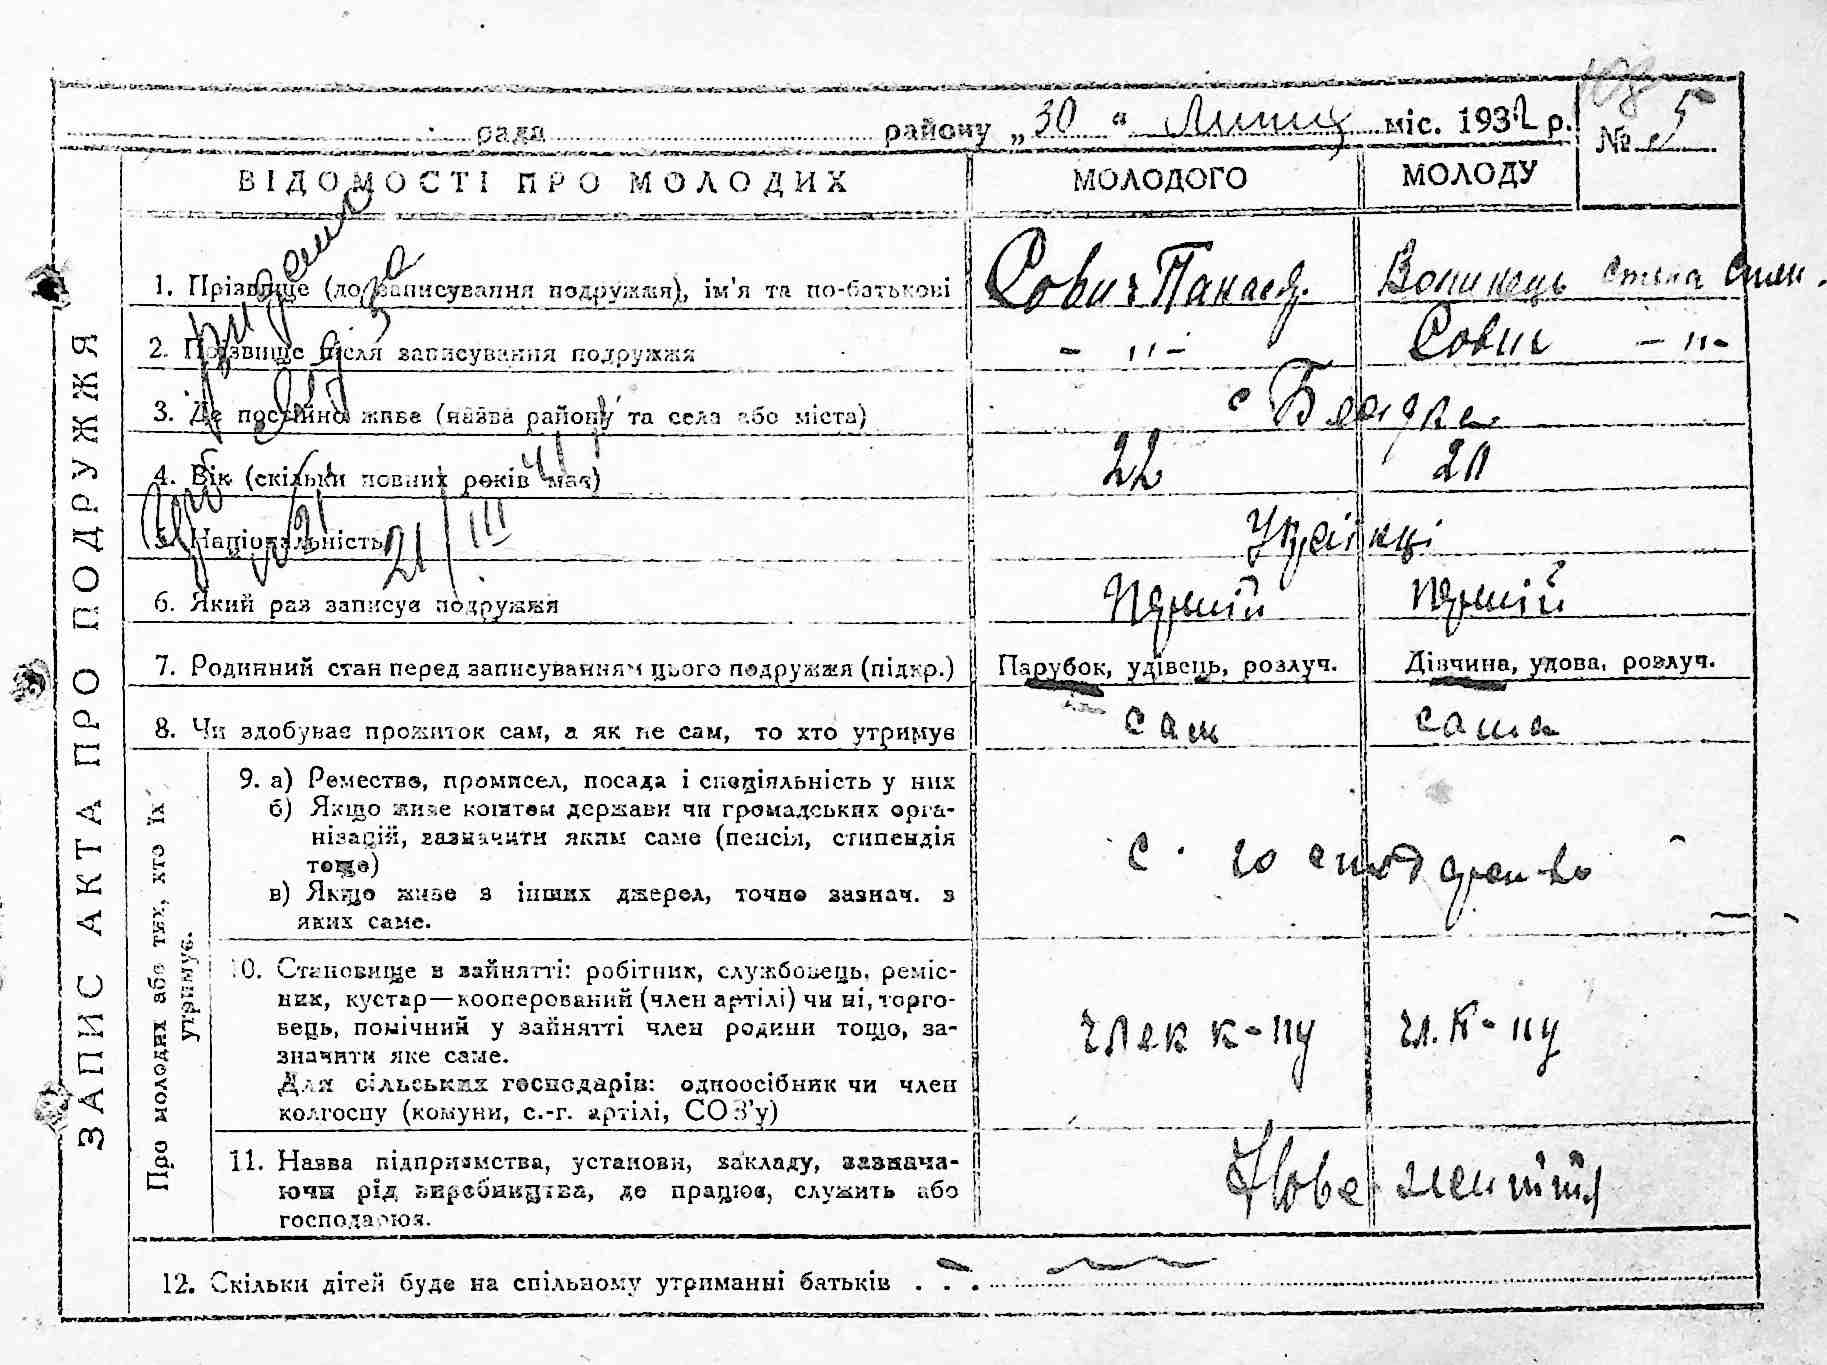 108
рада района „30“ Липня міс. 1932 р. № 5
ВІДОМОСТІ ПРО МОЛОДИХ МОЛОДОГО МОЛОДУ
1. Прізвище (до записування подружжя), ім'я та по-батькові Сович Панас Волинець
2. Прізвище після записування подружжя - " - Сович - " -
3. Де постійно живе (назва району та села або міста) с
4. Вік (скільки повних років має) 22 20
5. Національність Українці
21/III
6. Який раз записує подружжя Перший Перший
7. Родинний стан перед записуванням цього подружжя (підкр.) Парубок, удівець, розлуч. Дівчина, удова, розлуч.
8. Чи здобуває прожиток сам, а як не сам, то хто утримує сам сама
9. а) Ремество, промисел, посада і спеціяльність у них
б) Якщо живе коштом держави чи громадських орга-
нізацій, зазначити яким саме (пенсія, стипендія
тощо)
с. господарство
в) Якщо живе з інших джерел, точно зазнач. з
яких саме.
10. Становище в зайнятті: робітник, службовець, реміс-
ник, кустар—кооперований (член артілі) чи ні, торго-
вець, помічний у зайнятті член родини тощо, за-
значити яке саме.
член к-пу чл. к-пу
Для сільських господарів: одноосібник чи член
колгоспу (комуни, с.-г. артілі, СОЗ'у)
11. Назва підприємства, установи, закладу, зазнача-
ючи рід виробництва, де працює, служить або
господарює.
Нове життя
12. Скільки дітей буде на спільному утриманні батьків . . .
ЗАПИС АКТА ПРО ПОДРУЖЖЯ
Про молодих або тих, хто їх
утримує.